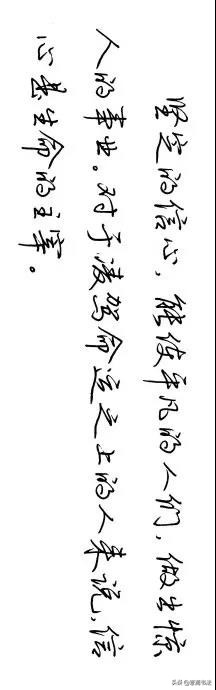 坚定的信心，能使平凡的人们，做出惊
人的事业。对于凌驾命运之上的人来说，信
心是生命的主宰。
头条@普通书法